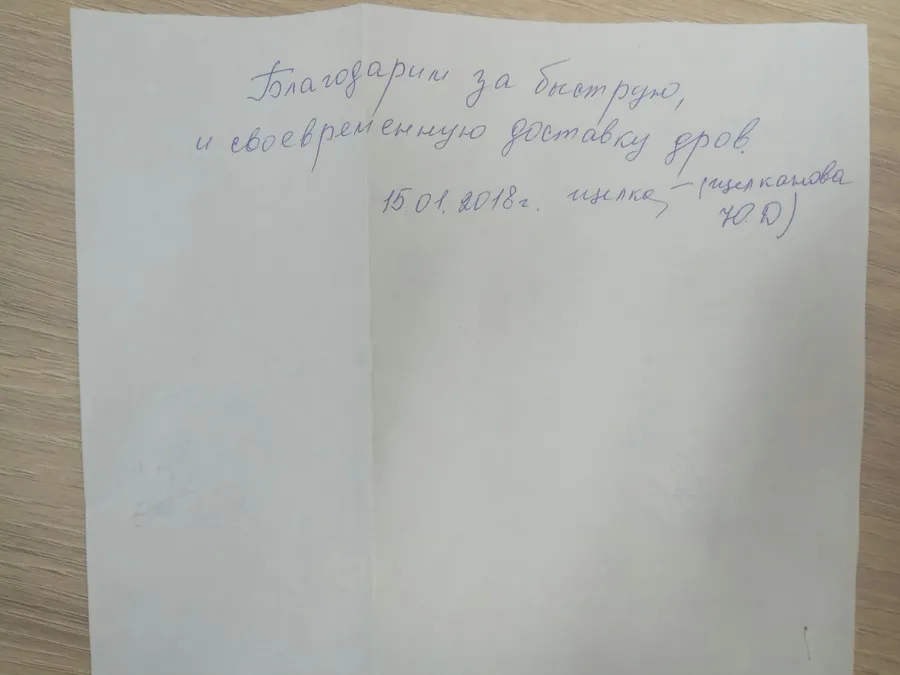 Благодарим за быструю,
и своевременную доставку дров.
15.01.2018г. щелка (щелканова
Ю.Д)